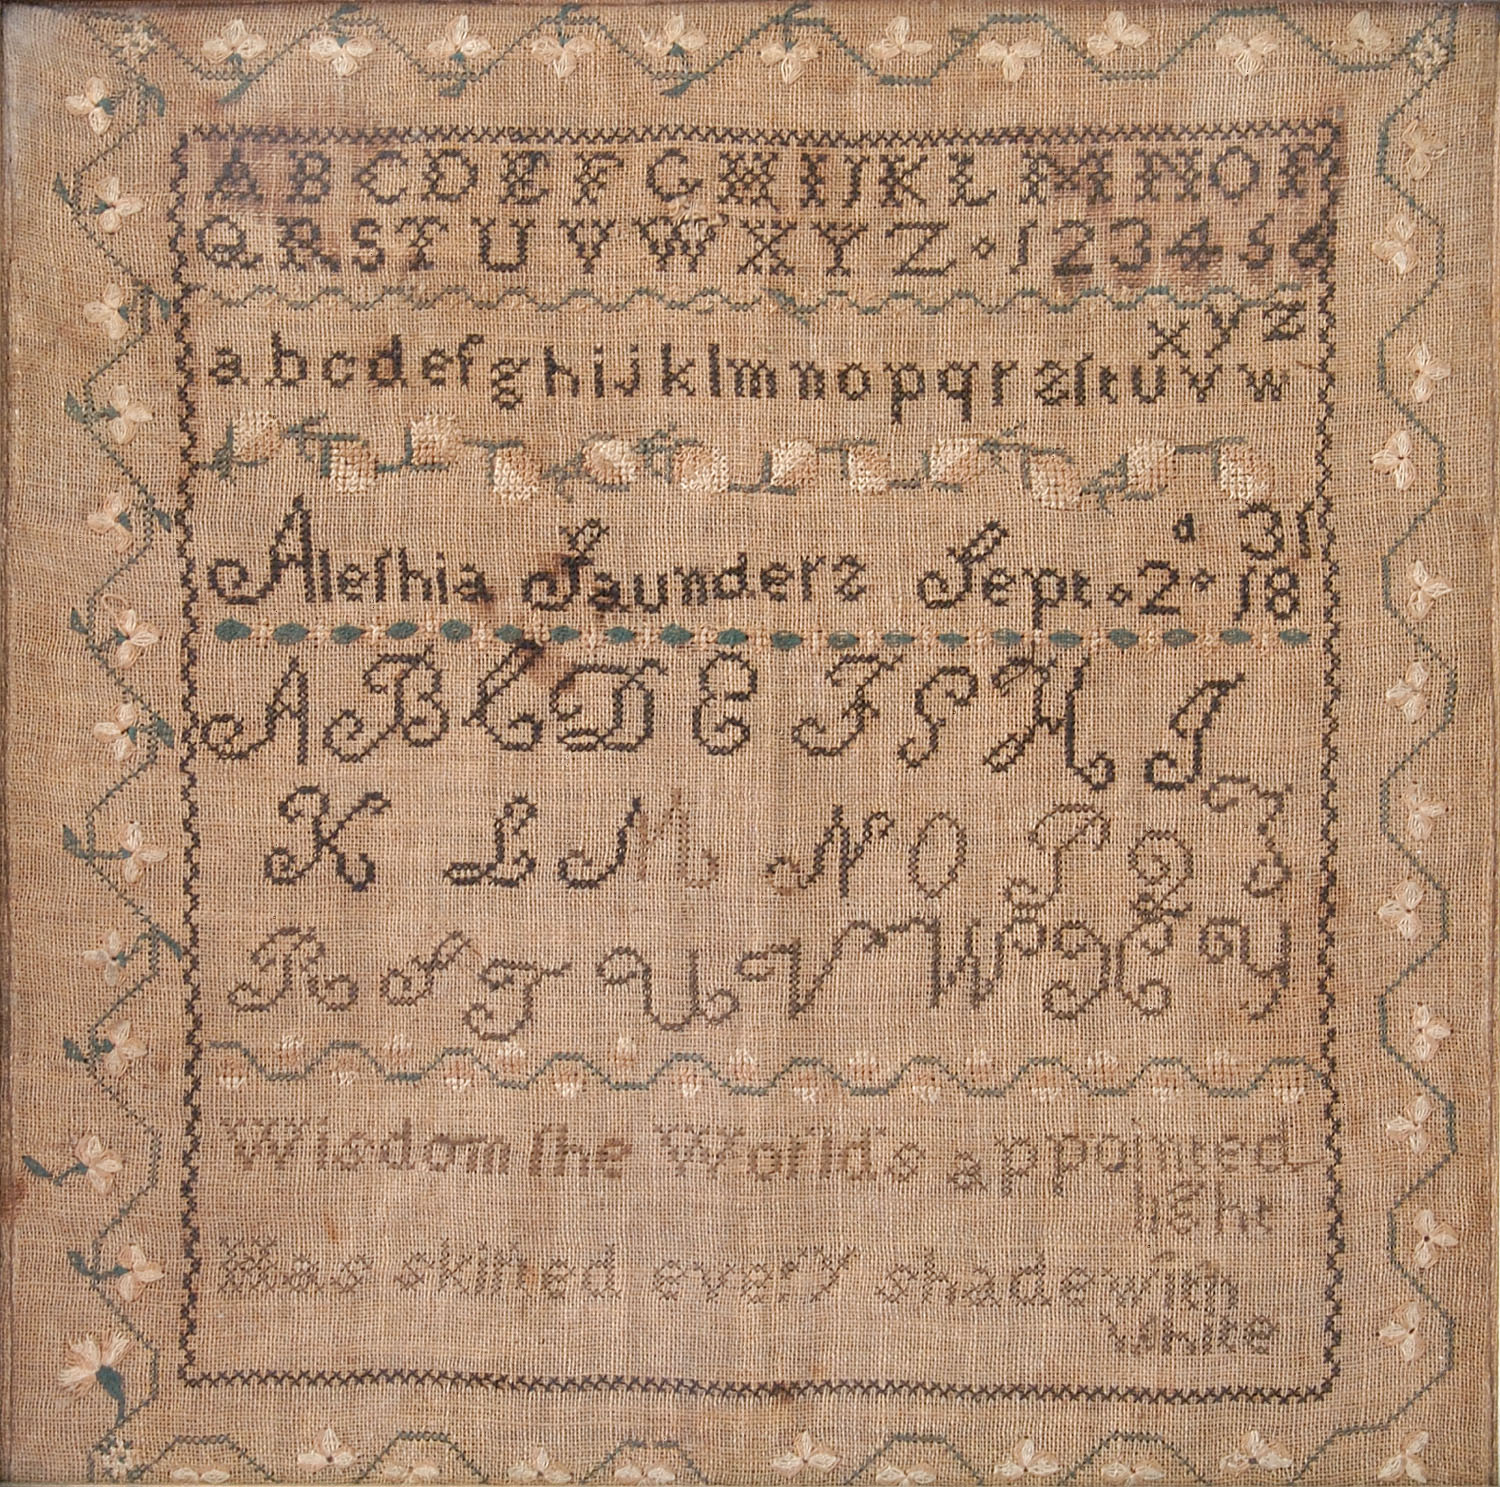 A B C D E F G H I J K L M N O P
Q R S T U V W X Y Z 1 2 3 4 5 6
a b c d e f g h i j k l m n o p q r s ſ t u v w x y z
Alethia Saunders Sept. 2d 1831
A B C D E F G H I J
K L M N O P Q
R S T U V W X Y
Wisdom the Worlds appointed
light
Has every shade with
white